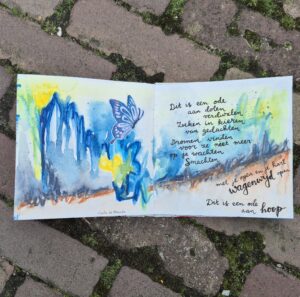 Dit is een ode
aan dolen
verdwalen
Zoeken in kieren
van gedachten
Dromen vinden
voor ze neet meer
op je wachten
Smachten
met je ogen en je hart
wagenwijd open
Dit is een ode
aan hoop